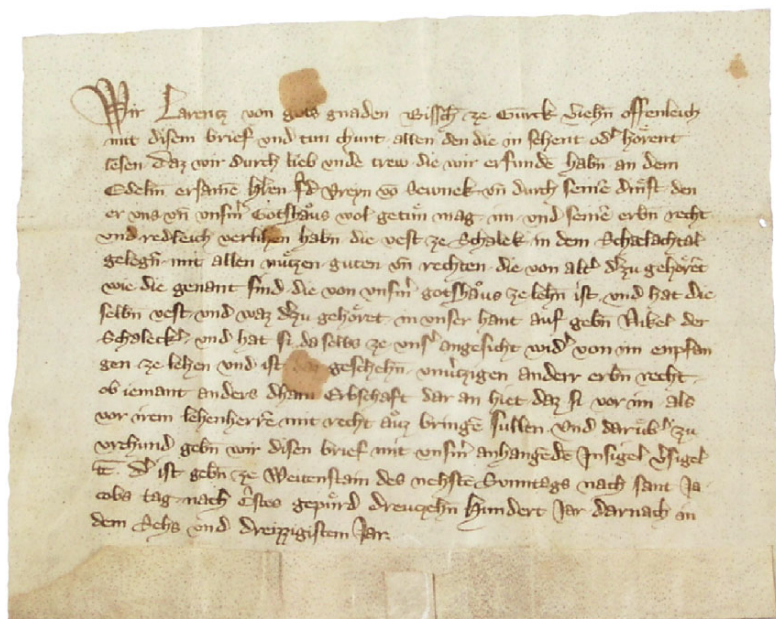 Wir Larentz von gots gnaden Bisschof ze Gurck Veriehn offenleich
mit disem brief vnd tun chunt allen den die in sehent od' hörent
lesen daz wir durch lieb vnde trew die wir erfunde habn an dem
Edeln ersamē von Sewnek vn̄ durch seinē dinst den
er vns vn̄ vnsm̄ Gotshaus wol getun mag im vnd seinē erbn recht
vnd redleich verlihen habn die vest ze Schalek in dem Schalachtal
gelegn mit allen nützen guten vn̄ rechten die von alt' dzu gehörēt
wie die genant sind die von vnsm̄ gotshaus ze lehn ist vnd hat die
selbn vest vnd waz dzu gehöret in vnser hant auf gebn Nikel der
Schaleck' vnd hat si da selbs ze vns' angesicht wid' von im enpfan
gen ze lehen vnd ist daz geschehn vnützigen anderr erbn recht
ob iemant anders dhain Erbschaft dar an hiet daz si vor im als
vor irem lehenherrē mit recht auz bringē sullen Vnd darüb' zu
vrchund gebn wir disen brief mit vnsm̄ anhangēdē Insigel v'sigel
tē. D' ist gebn ze Weitenstain des nehstē Svnntags nach sant Ja
cobs tag nach C̄stes gepürd dreutzehn Hundert Jar darnach in
dem Sehs vnd dreizzigistem Jar.